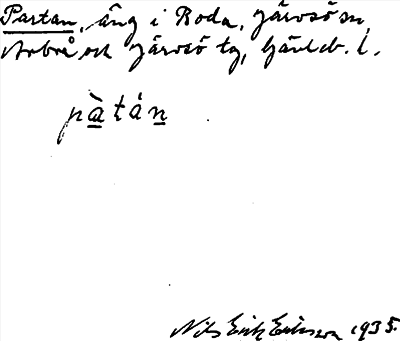 Partan, äng i Roda, Järvsö sn,
Arbrå och Järvsö tg, Gävleb. l.
pàtán
Nils Erik Eriksson 1935.